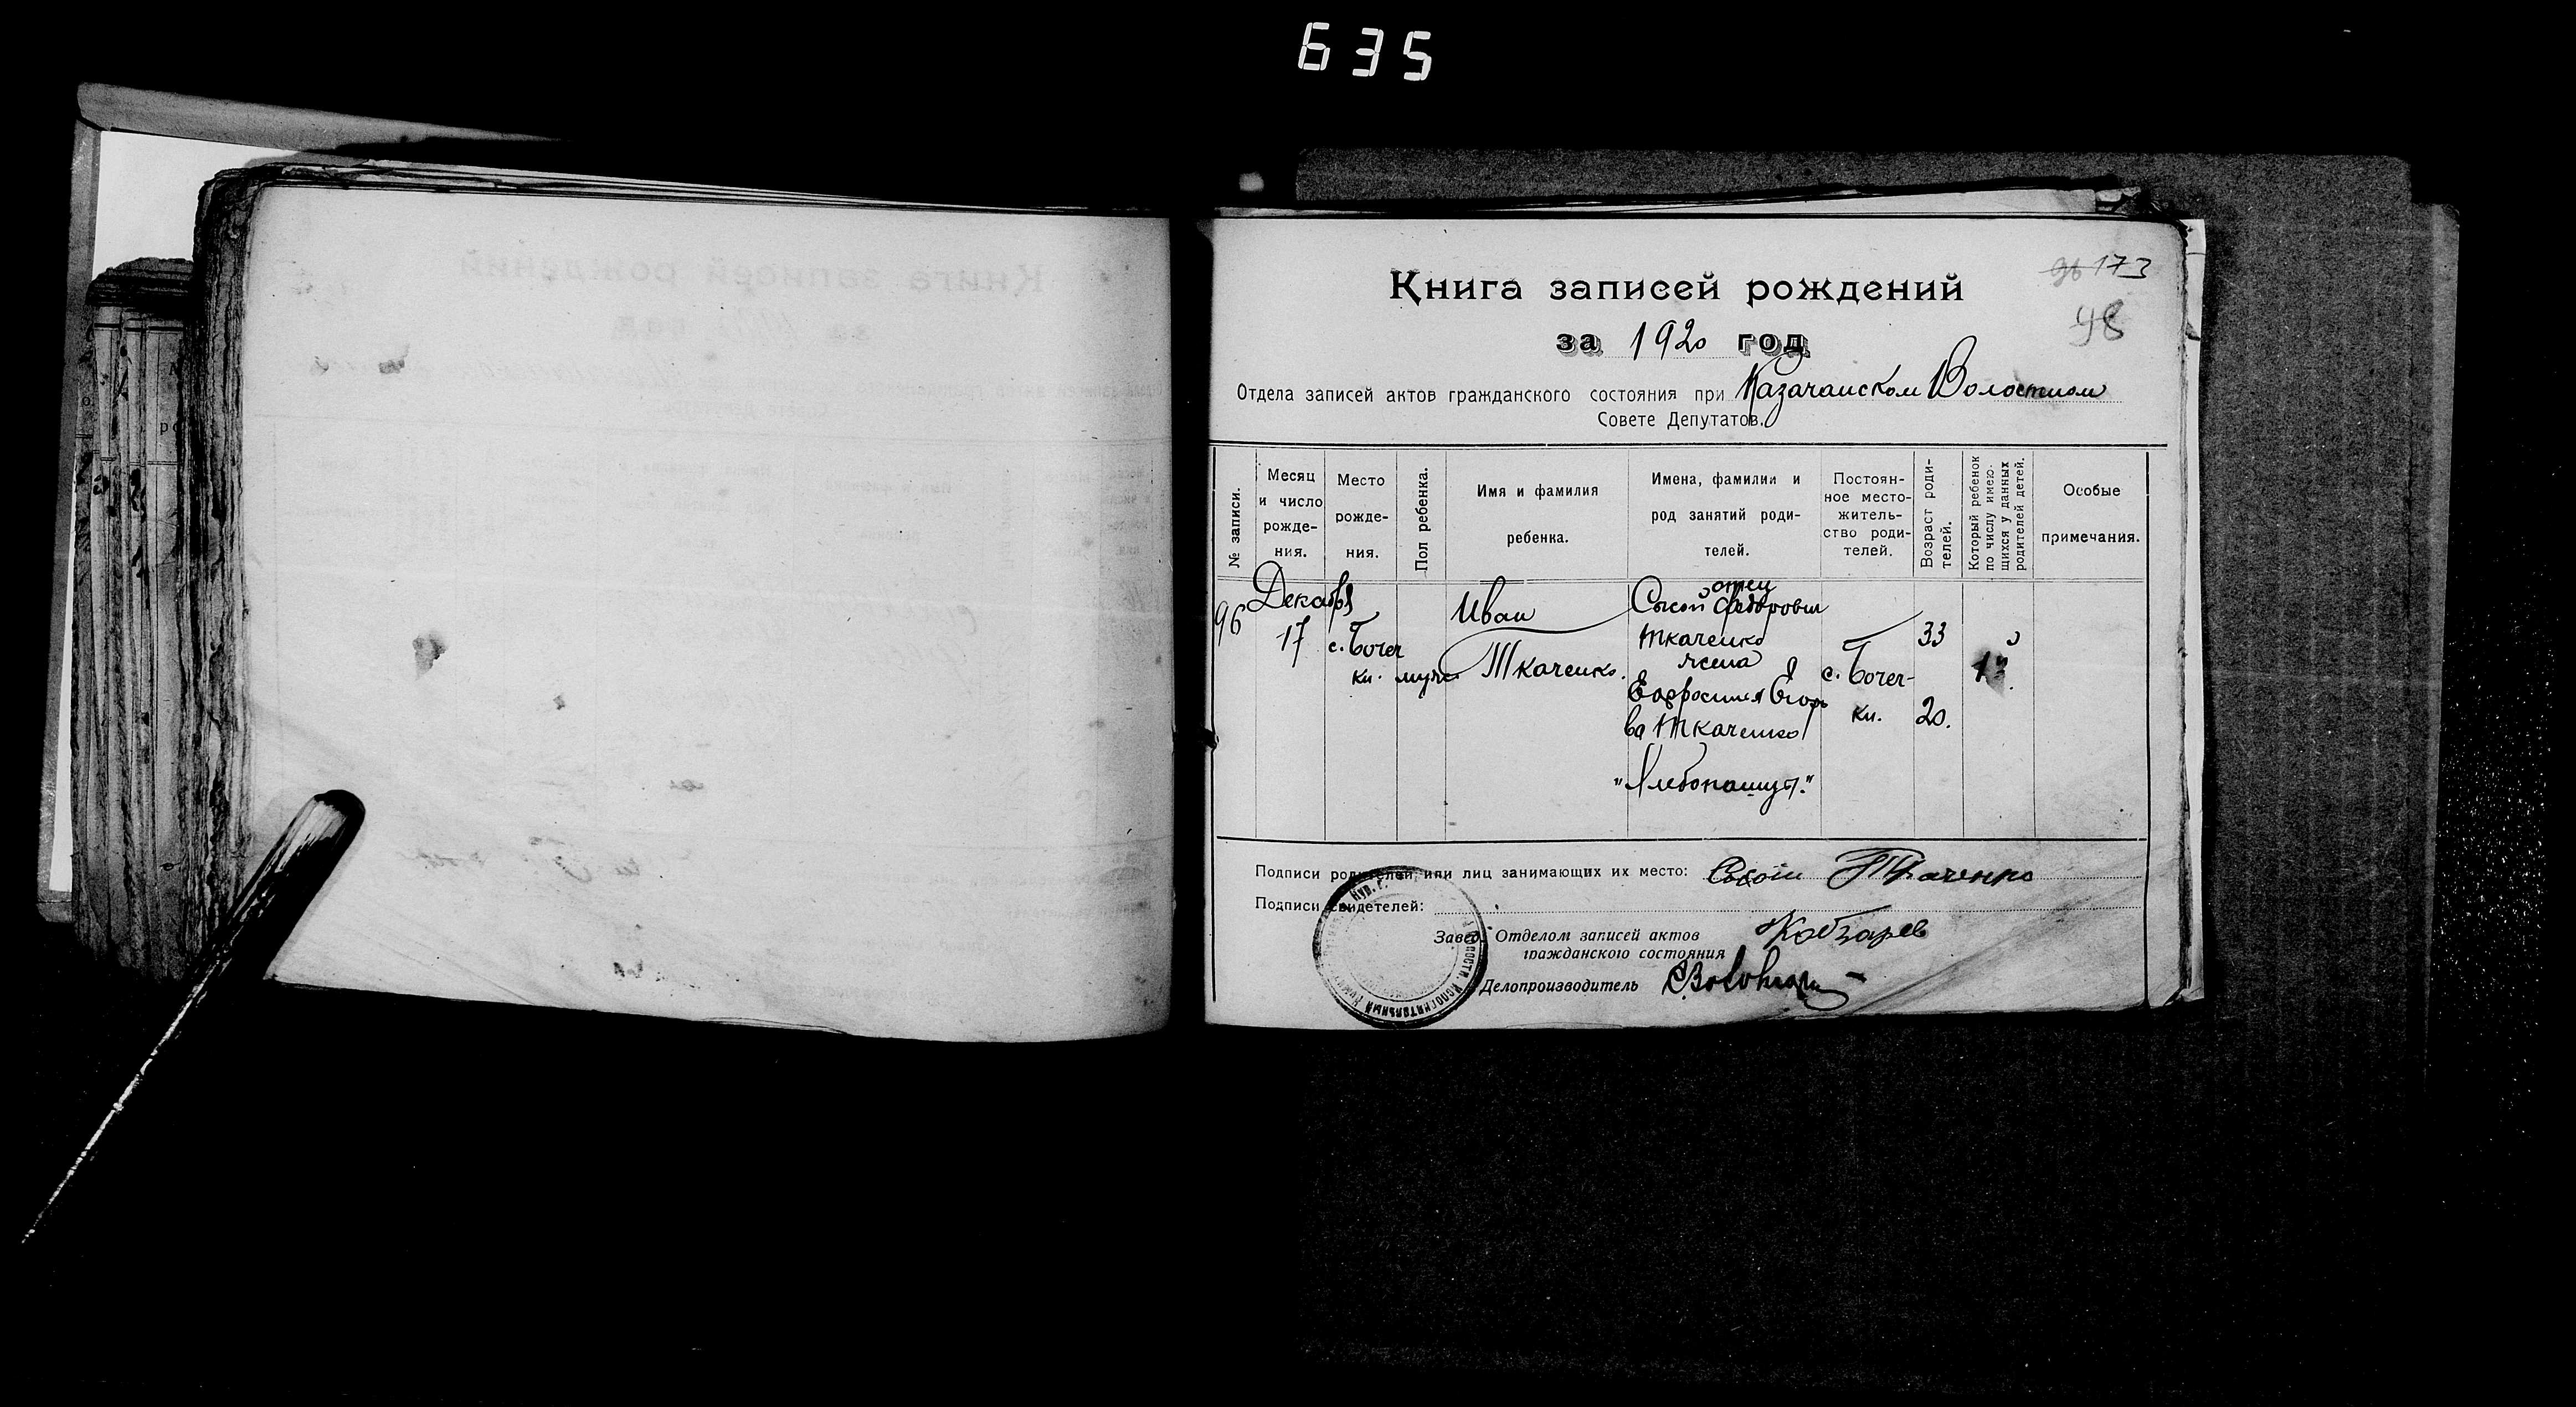 635
96 173
98
Книга записей рождений
за 1920 год
Отдела записей актов гражданского состояния при Казачанском Волостном
Совете Депутатов.
№ записи.
Месяц и число рожде- ния.
Место рожде- ния.
Пол ребенка.
Имя и фамилия ребенка.
Имена, фамилии и род занятий роди- телей.
Постоян- ное место- житель- ство роди- телей.
Возраст роди- телей.
Который ребенок по числу имею- щихся у данных родителей детей.
Особые примечания.
96
Декабря
17
с. Бочеч
ки.
муж.
Иван
Ткаченко.
отец
Сысой Федорович
Ткаченко
жена
Евфросиния Егоро
ва Ткаченко
"Хлебопашцы."
с. Бочеч-
ки.
33
20.
1й
Подписи родителей, или лиц занимающих их место: Сысой Ткаченко
Подписи свидетелей:
Завед. Отделом записей актов гражданского состояния Кобзарев
Делопроизводитель